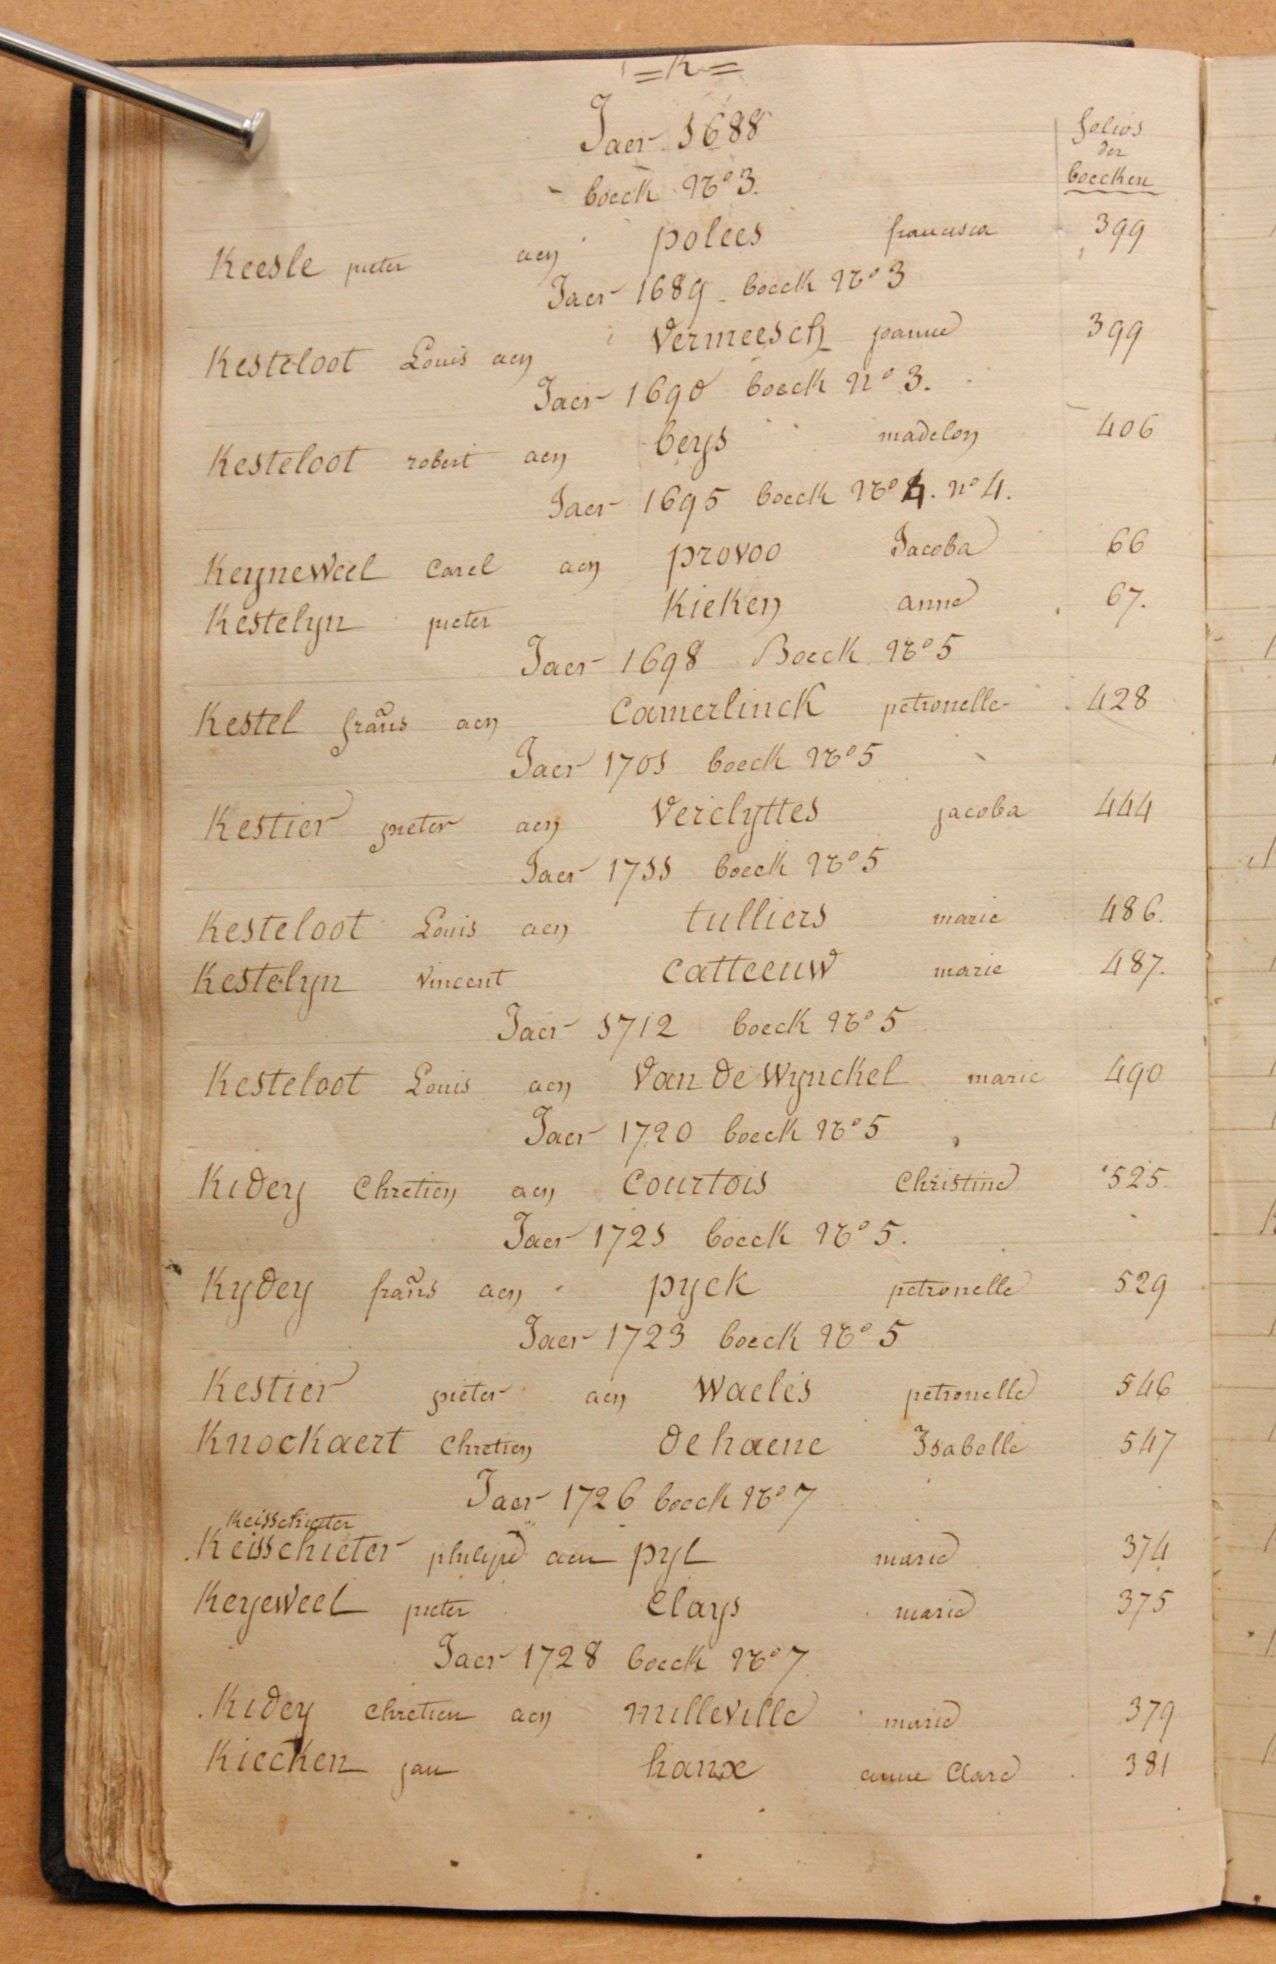 =K=
Jaer 1688
folios
der
boecken
boeck No 3.
Keesle pieter aen polees francisca 399
Jaer 1689 boeck No 3
Kesteloot Louis aen Vermeesch joanne 399
Jaer 1690 boeck no 3.
Kesteloot robert aen beys madelon 406
Jaer 1695 boeck No 4. no 4.
Keyneweel Carel aen provoo Jacoba 66
Kestelyn pieter Kieken anne 67.
Jaer 1698 Boeck No 5
Kestel frañs aen Camerlinck petronelle 428
Jaer 1701 boeck No 5
Kestier pieter aen Verclyttes jacoba 444
Jaer 1711 boeck No 5
Kesteloot Louis aen tulliers marie 486.
Kestelyn Vincent Catteeuw marie 487.
Jaer 1712 boeck No 5
Kesteloot Louis aen Van de Wynckel marie 490
Jaer 1720 boeck No 5
Kidey Chretien aen Courtois Christine 525.
Jaer 1721 boeck No 5.
Kydey frañs aen pyck petronelle 529
Jaer 1723 boeck No 5
Kestier pieter aen Waeles petronelle 546
Knockaert Chretien dehaene Isabelle 547
Jaer 1726 boeck No 7
Keisschieter
Keisschieter philipe aen pyl marie 374
Keyeweel pieter Clays marie 375
Jaer 1728 boeck No 7
Kidey Chretien aen milleville marie 379
Kiecken jan hanx anne Clare 381